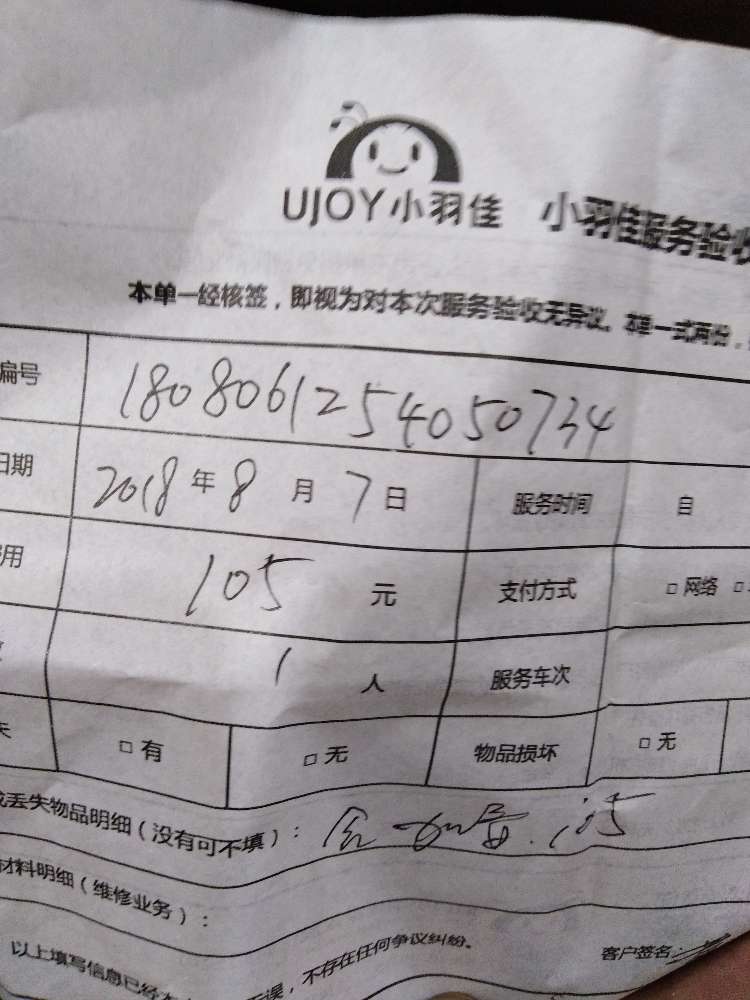 UJOY小羽佳 小羽佳服务验收
本单一经核签，即视为对本次服务验收无异议。本单一式两份，
编号 1808061254050734
日期 2018年8月7日 服务时间 自
用 105元 支付方式 □网络 □
1人 服务车次
失 □有 □无 物品损坏 □无
或丢失物品明细（没有可不填）： 105
材料明细（维修业务）：
以上填写信息已经本 误，不存在任何争议纠纷。 客户签名：